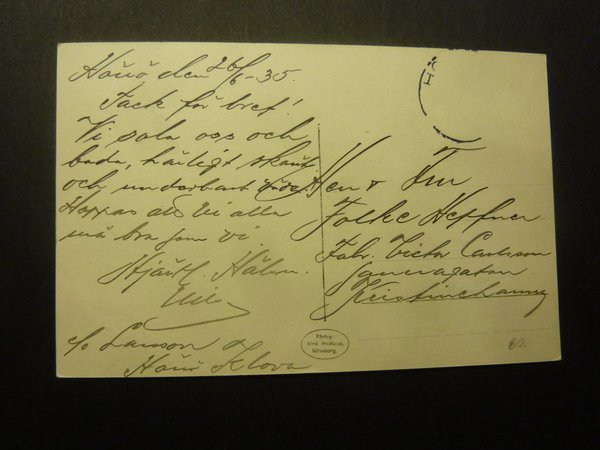 Hönö den 26/6-35.
Tack för bref!
Vi sola oss och
bada, härligt skönt
och underbart väder.
Hoppas att Ni alla
må bra som vi.
Hjärtl. Häls.
c/o Larsson
Hönö Klova
Herr & Fru
Folke Heffner
Fabr. Victor Carlsson
Kristinehamn
Förlag:
Hedlund,
Göteborg.
80.